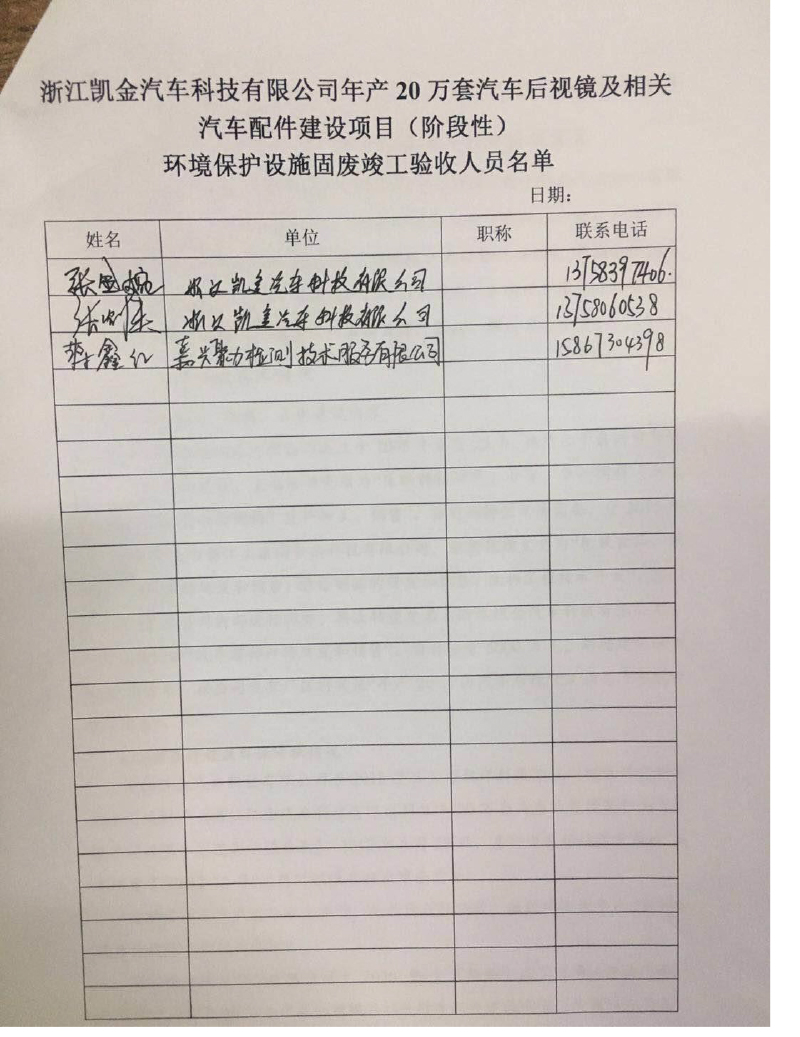 浙江凯金汽车科技有限公司年产 20 万套汽车后视镜及相关
汽车配件建设项目（阶段性）
环境保护设施固废竣工验收人员名单
日期：
姓名 单位 职称 联系电话
张 浙江凯金汽车科技有限公司 13758397406.
浙江凯金汽车科技有限公司 13758060538
鑫红 嘉兴聚力检测技术服务有限公司 15867304398